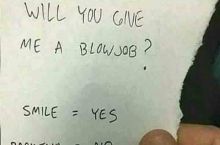 WILL YOU GIVE
ME A BLOWJOB?
SMILE = YES
= NO